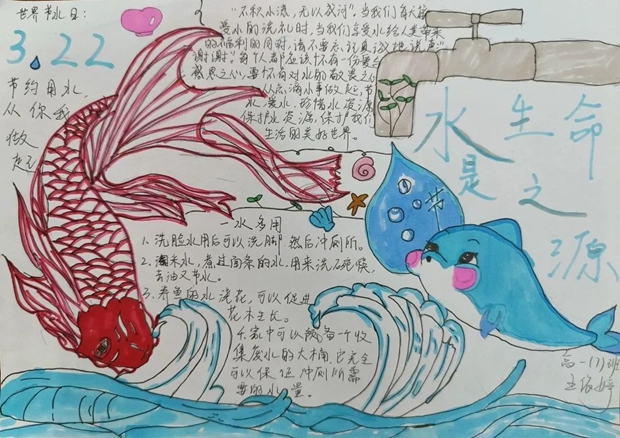 世界节水日:
3.22
节约用水,
从你我
做
起
"不积小流,无以成河",当我们每天接
受水的洗礼时,当我们享受水给人类带来
的福利的同时,请不要忘记真诚地说声"
谢谢"。每个人都应该怀有一份
感恩之心,更怀有对水的敬畏之心
从点滴小事做起,节
水,爱水,珍惜水资源
保护水资源,保护我们
生活的美好世界。
水是生命之源
一水多用
1、洗脸水用后可以洗脚,然后冲厕所。
2、淘米水,煮过面条的水,用来洗碗筷,
去油又节水。
3、养鱼的水浇花,可以促进
花木生长。
4、家中可以预备一个收
集废水的大桶,它完全
可以保证冲厕所需
要的水量。
高一(7)班